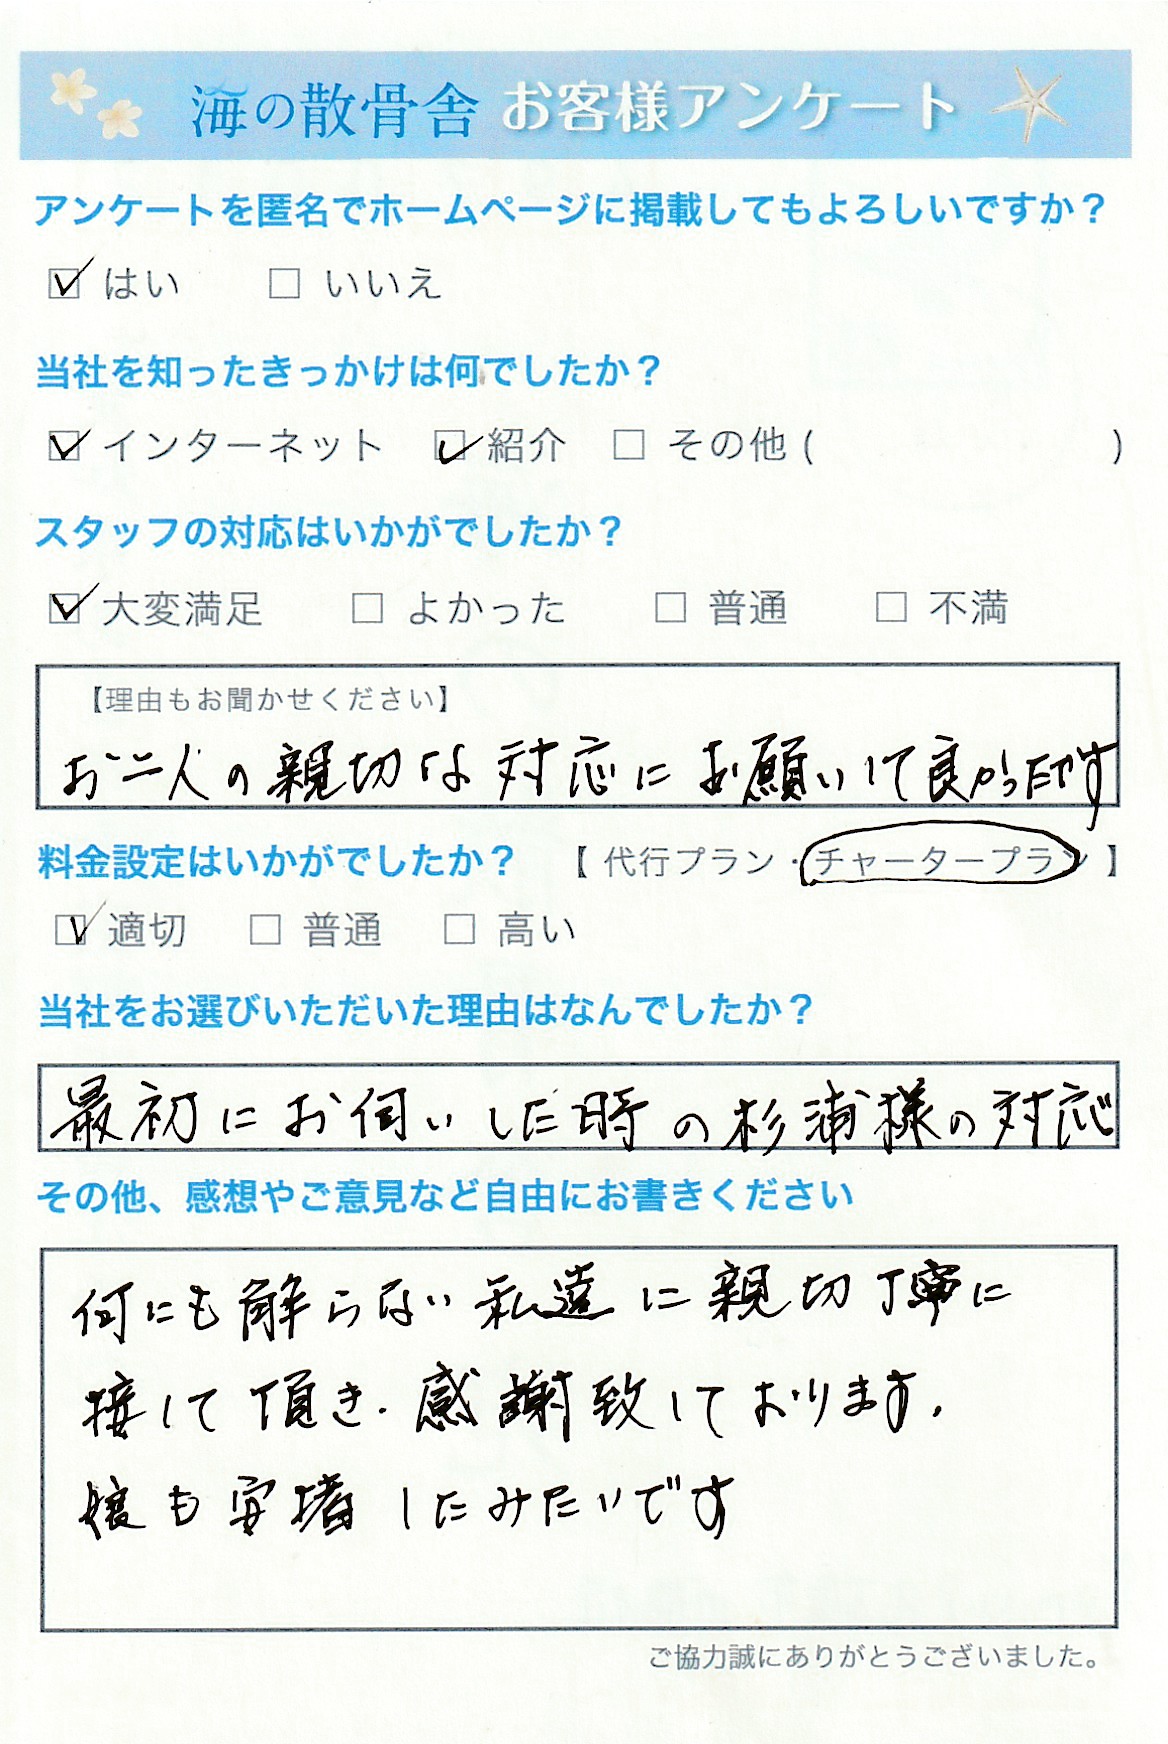 海の散骨舎 お客様アンケート
アンケートを匿名でホームページに掲載してもよろしいですか？
☑ はい □ いいえ
当社を知ったきっかけは何でしたか？
☑ インターネット ☑ 紹介 □ その他 ( )
スタッフの対応はいかがでしたか？
☑ 大変満足 □ よかった □ 普通 □ 不満
【理由もお聞かせください】
お二人の親切な対応にお願いして良かったです
料金設定はいかがでしたか？ 【 代行プラン・チャータープラン 】
☑ 適切 □ 普通 □ 高い
当社をお選びいただいた理由はなんでしたか？
最初にお伺いした時の杉浦様の対応
その他、感想やご意見など自由にお書きください
何にも解らない私達に親切丁寧に
接して頂き、感謝致しております。
娘も安堵したみたいです
ご協力誠にありがとうございました。